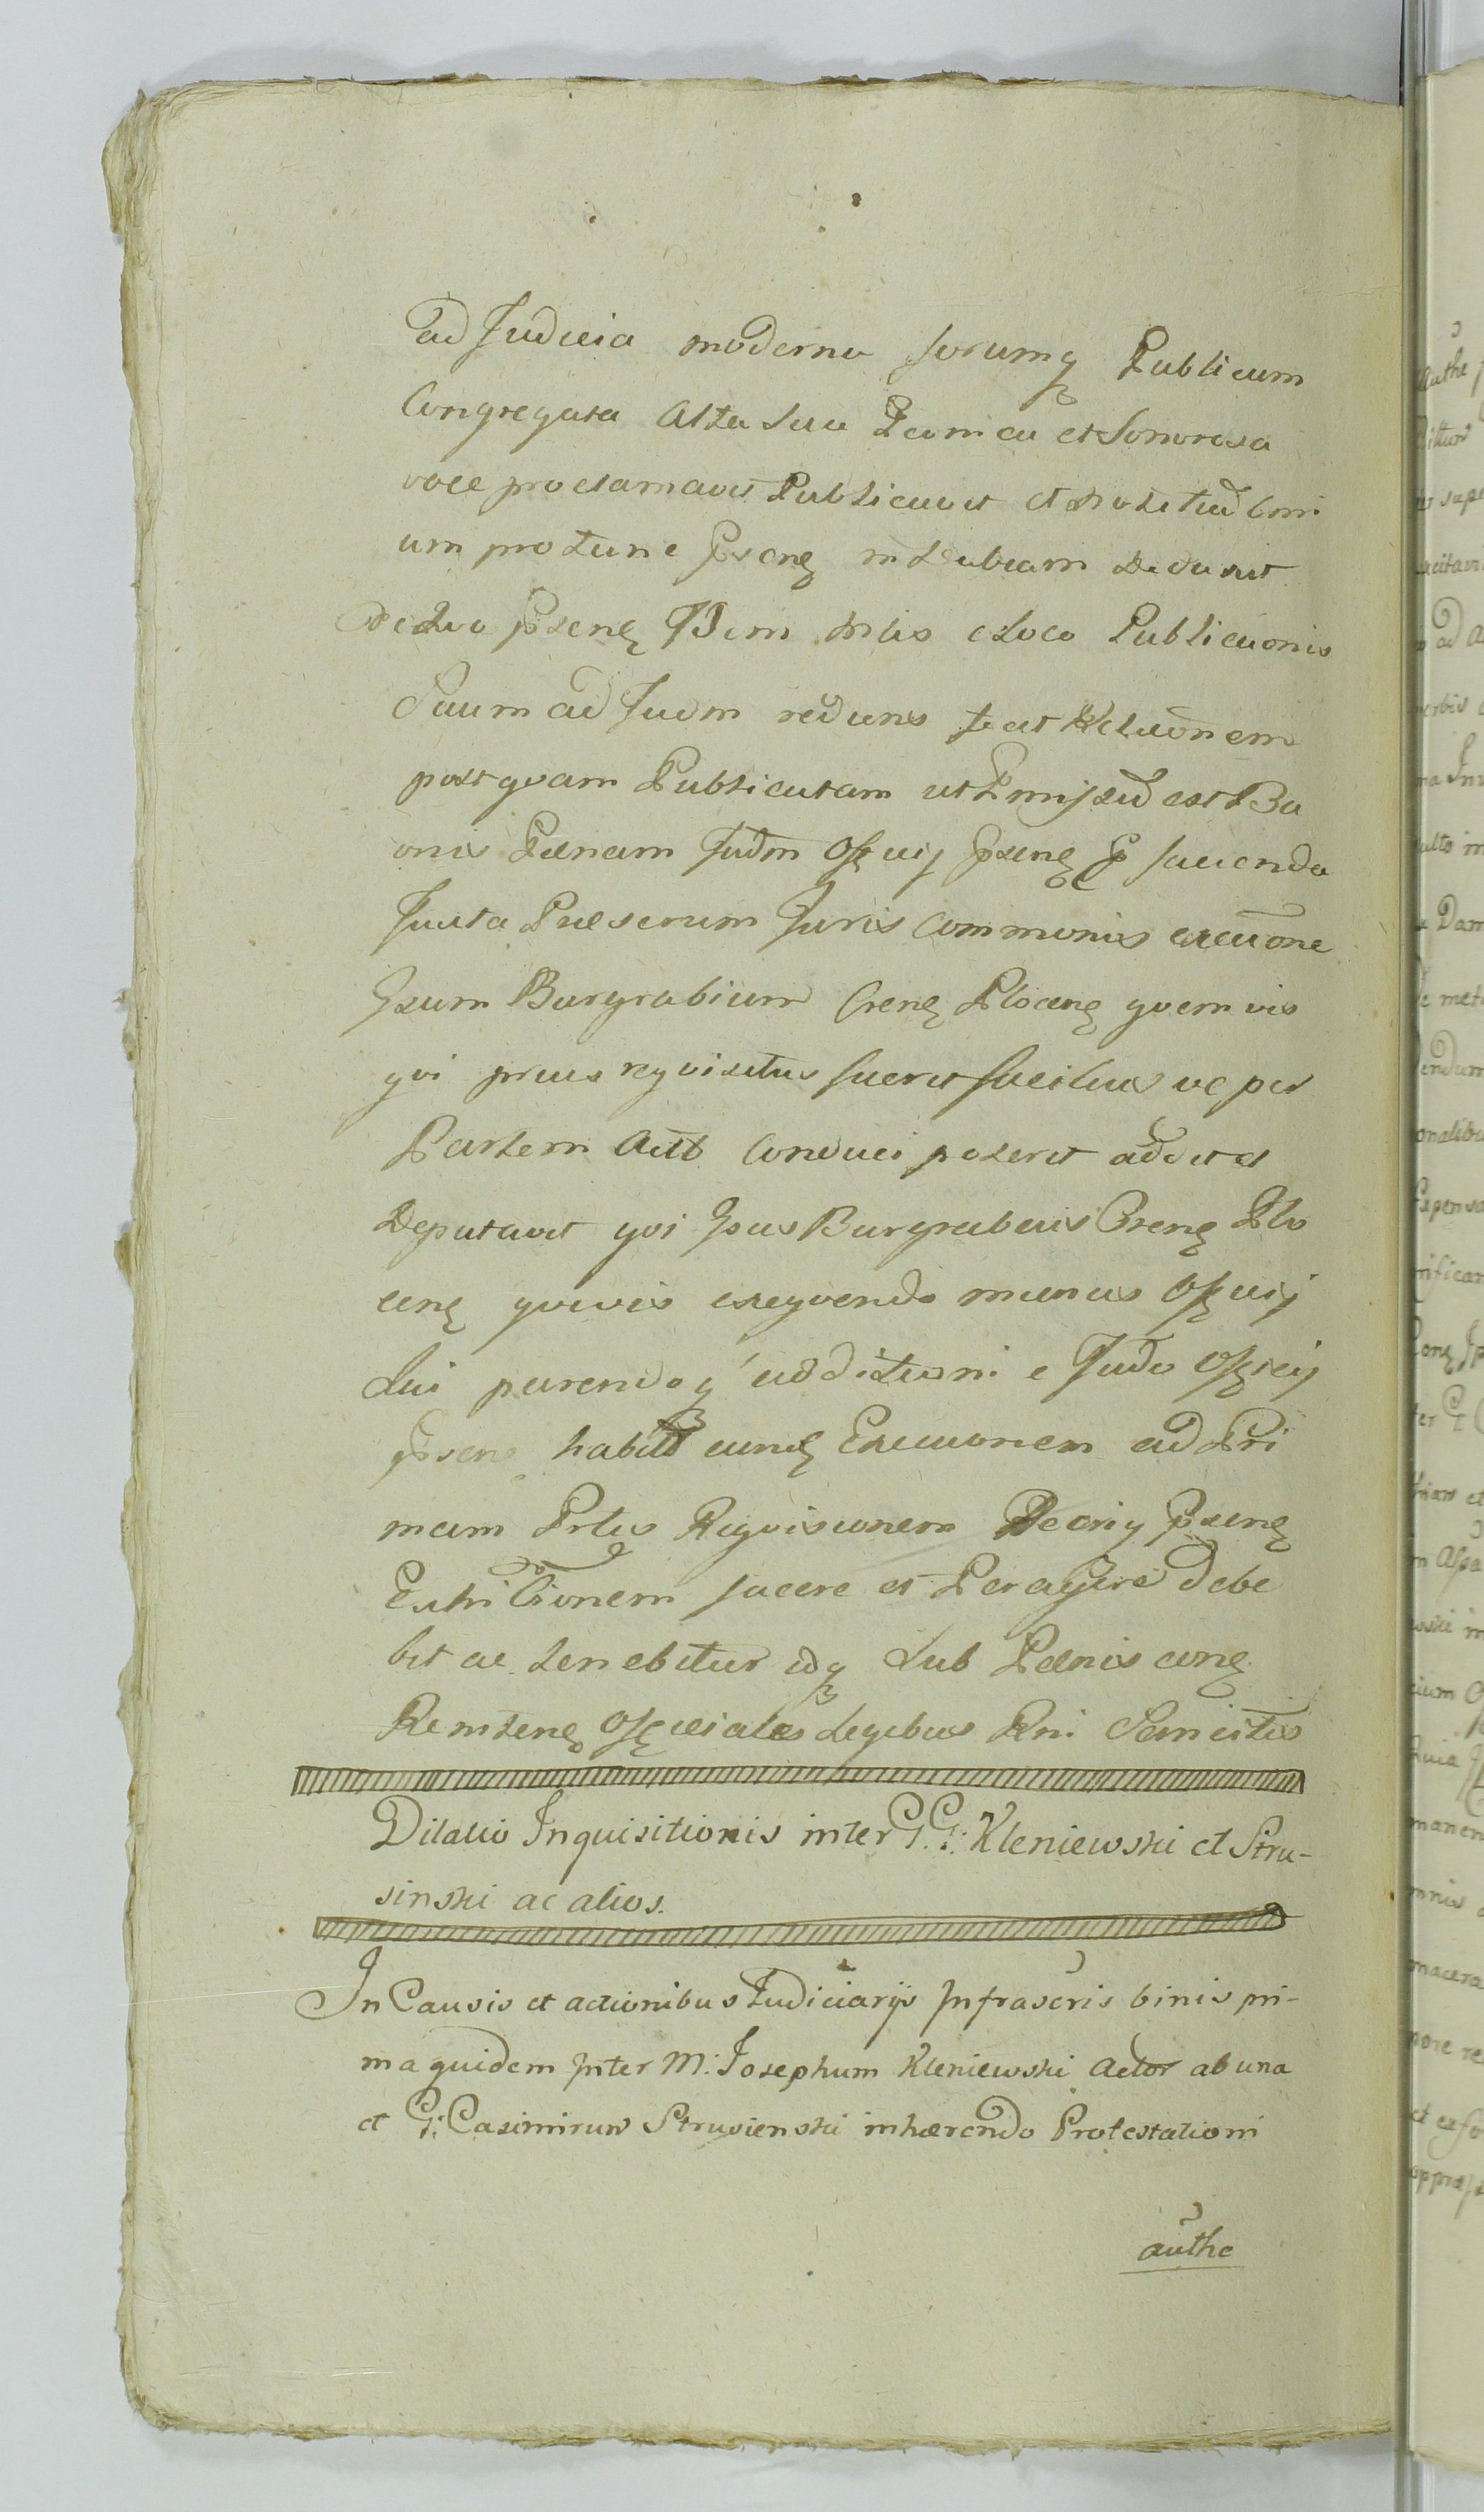 ad Judicia moderna forumq Publicum
Congregata Alta sua Iconica et Sonorosa
voce proclamavit Publicavit et notitiad omi
um pro tunc psenq indubiam Deduxit
de quo psenq Idem Mlis e loco Publicaonis
Suum ad Judm rediens fecit Relaonem
post qvam Publicatam ut Pmissd est Ba
onis Paenam Judm Offcij psenq p facienda
Juxta Praescrum Juris Communis execuone
Ipsum Burgrabium Crenq Plocenq qvemvis
qvi prius reqvisitus fuerit facilius ve per
Partem Actt Conduci poterit addit et
Deputavit qvi Ipsus Burgrabius Crenq Plo
cenq qvivis exeqvendo munus Offcij
sui parendoq additioni e Judo Offcij
psen habitt eundq Execuonem ad Pri
mam Prtis Reqvisionem
facere et Peragere debe
bit ac tenebitur idq sub Paenis conq
Remtenq Offciales legibus Rni Sancitis
Dilatio Inquisitionis inter G.G: Kleniewski et Stru-
sinski ac alios.
In Causis et actionibus Judiciarijs Infrascris binis pri-
ma quidem Inter M: Josephum Kleniewski Actor ab una
et G: Casimirum Strusienski inhaerendo Protestationi
authe